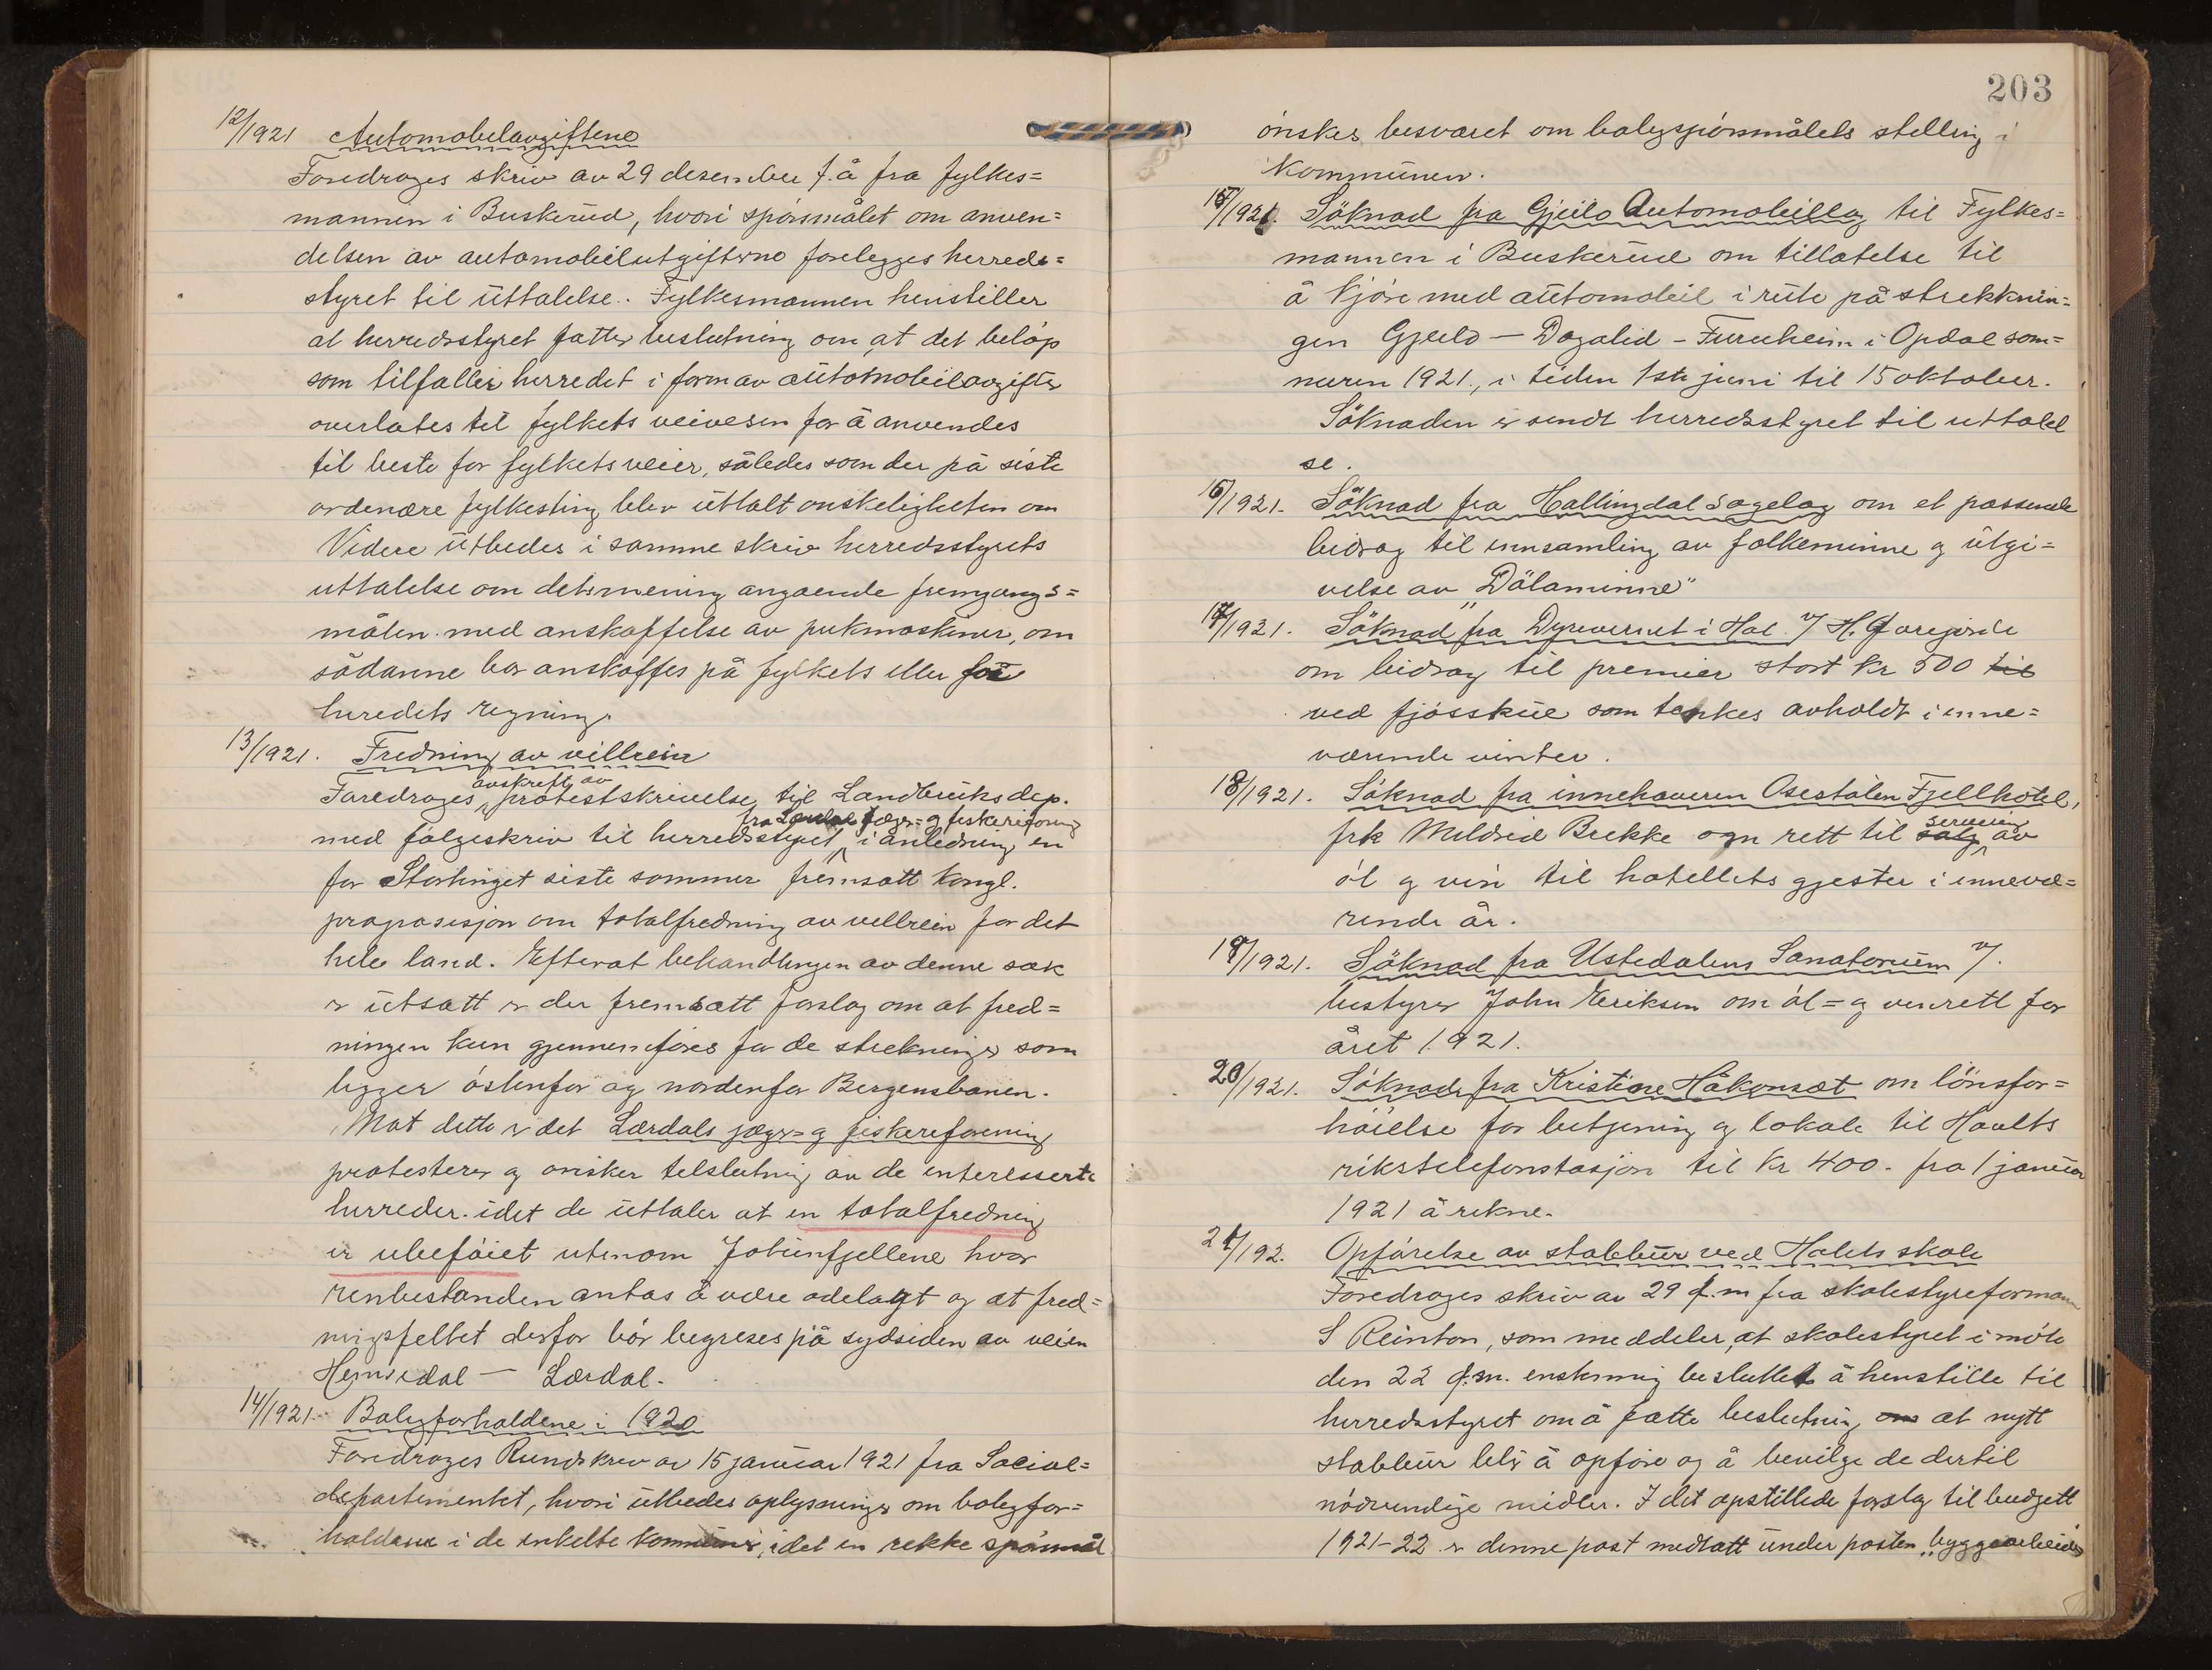 12/1921 Automobilavgiftene
Foredrages skriv av 29 desember f.å fra fylkes=
mannen i Buskerud, hvori spörsmålet om anven=
delsen av automobilutgifterne forelegges herreds=
styret til uttalelse. Fylkesmannen henstiller
at herredsstyret fatter beslutning om at det belöp
som tilfaller herredet i form av automobilavgifter
overlates til fylkets veivesen for å anvendes
til beste for fylkets veier, således som der på siste
ordenære fylkesting blev uttalt onskeligheten om
Videre utbedes i samme skriv herredsstyrets
uttalelse om dets mening angaende fremgangs=
måten med anskaffelse av pukmaskiner, om
sådanne bor anskaffes på fylkets eller for
heredets regning.
13/1921. Fredning av villrein
avskrift av
Foredrages protestskrivelse til Landbruksdep.
fra Lærdal jæger= og fiskeriforening
med fölgeskriv til herredsstyret i anledning en
for Stortinget siste sommer fremsatt kongl.
proposisjon om totalfredning av villrein for det
hele land. Efterat behandlingen av denne sak
er utsatt er der fremsatt forslag om at fred=
ningen kun gjennemföres for de strekninger som
ligger östenfor og nordenfor Bergensbanen.
Mot dette er det Lærdals jæger= og fiskereforening
protesterer og onsker tilslutning av de interesserte
herreder. idet de uttaler at en totalfredning
er ubeföiet utenom Jotunfjellene hvor
renbestanden antas å være odelagt og at fred=
ningsfeltet derfor bör begreses på sydsiden av veien
Hemsedal — Lærdal.
14/1921. Boligforholdene i 1920
Foredrages Rundskriv av 15 januar 1921 fra Social=
departementet, hvori utbedes oplysninger om boligfor=
holdene i de enkelte kommuner, idet en rekke spörsmål
203
önskes besvaret om boligspörsmålets stilling i
kommunen.
15/1921. Söknad fra Gjeilo Automobillag til Fylkes=
mannen i Buskerud om tillatelse til
å kjöre med automobil i rute på streknin=
gen Gjeilo — Dagalid - Furuheim i Opdal som=
meren 1921., i tiden 1ste juni til 15 oktober.
Söknaden er sendt herredsstyret til uttalel
se.
16/1921. Söknad fra Hallingdal Sogelag om et passende
bidrag til innsamling av folkeminne og utgi=
velse av "Dölaminne"
17/1921. Söknad fra Dyrevernet i Hol v/ H. Garejorde
om bidrag til premier stort kr 500 til
ved fjösskue som tenkes avholdt i inne=
værende vinter.
18/1921. Söknad fra innehaveren Osestölen Fjellhotel,
frk Mildrid Brekke ogn rett til salg servering av
öl og vin til hotellets gjester i inneve=
rende år.
19/1921. Söknad fra Ustedalens Sanatorium v/.
bestyrer John Eeriksen om öl= og vinrett for
året 1921.
20/1921. Söknad fra Kristine Håkonsæt om lönsfor=
höielse for betjening og lokale til Hovlts
rikstelefonstasjon til kr 400.- fra 1 januar
1921 å rekne.
21/192. Opförelse av stabbur ved Holets skole
Foredrages skriv av 29 f.m fra skolestyreformann
S Reinton, som meddeler, at skolestyret i möte
den 22 f.m. enstemmig besluttet å henstille til
herredsstyret om å fatte beslutning om at nytt
stabbur blir å opföre og å bevilge de dertil
nödvendige midler. I det opstillede forslag til budgett
1921-22 er denne post medtatt under posten "byggearbeider